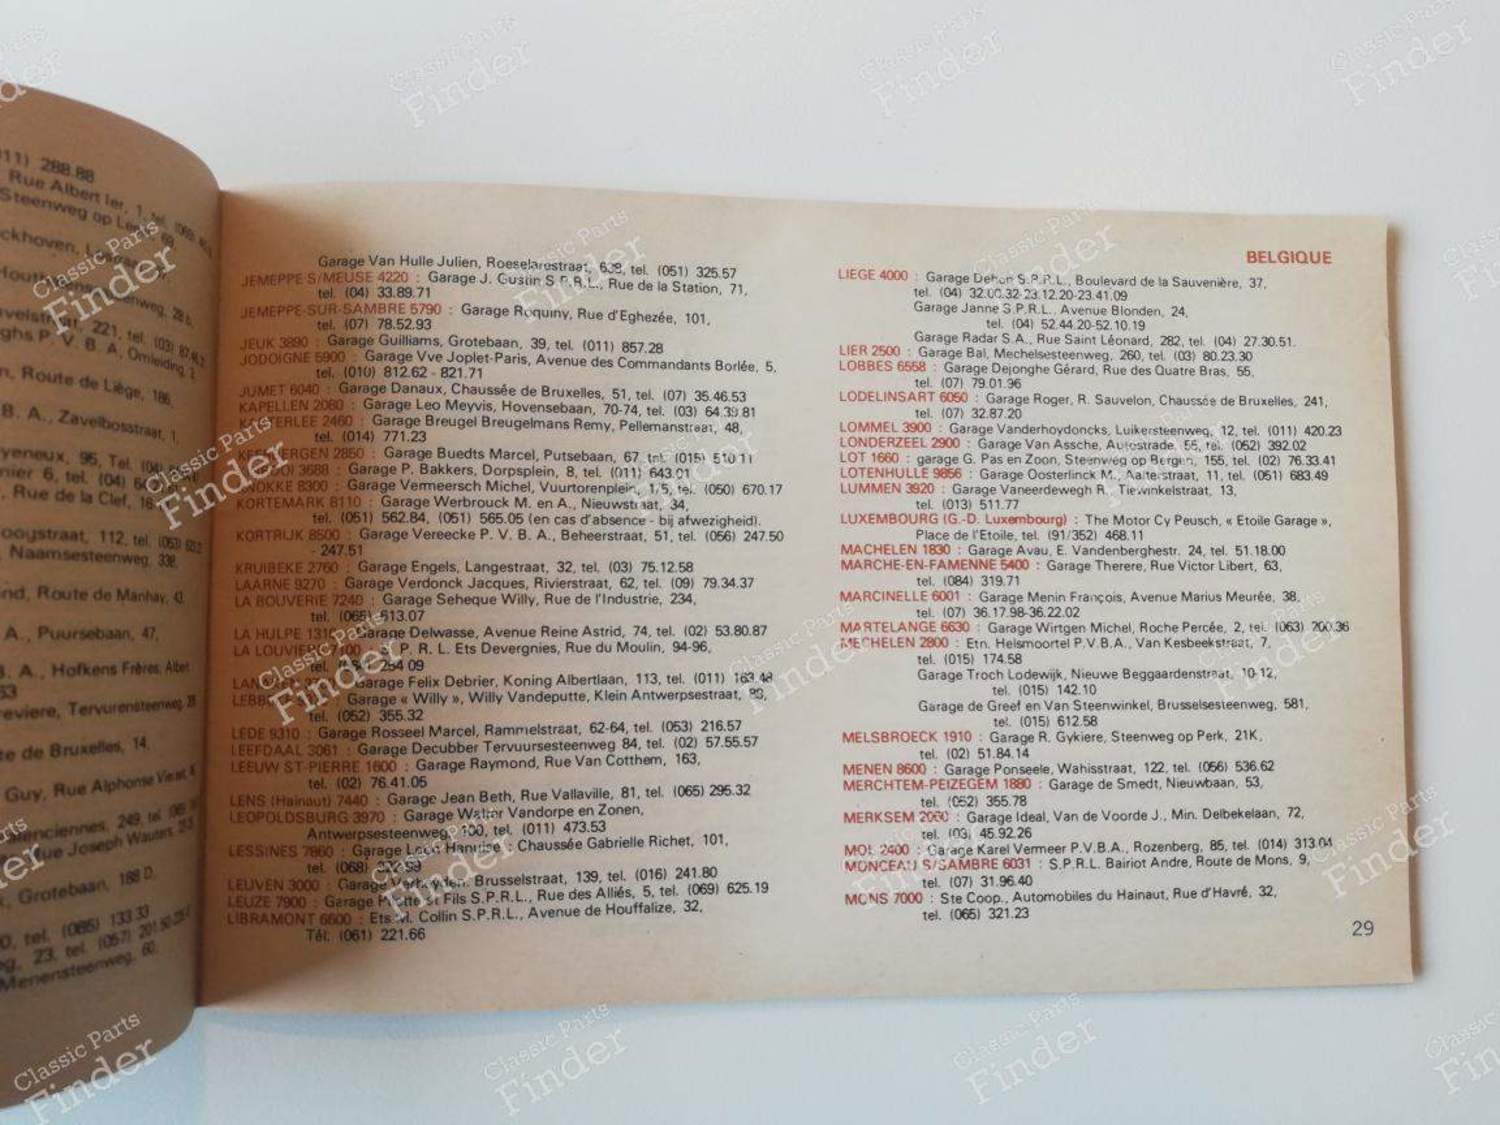 11) 288.88
Rue Albert Ier, 1, tel.
Steenweg op
Route de Liège, 186,
B. A., Zavelbosstraat, 1,
Rue de la Clef,
112, tel.
Naamsesteenweg, 338,
Route de Manhay, 43
A., Puursebaan, 47,
B. A., Hofkens Frères, Albert
53
te de Bruxelles, 14,
Guy, Rue Alphonse
249, tel.
Rue Joseph Wauters,
Grotebaan, 188 D,
tel. (085) 133.33
23, tel. (057)
Menensteenweg, 60,
Garage Van Hulle Julien, Roeselarestraat, 638, tel. (051) 325.57
JEMEPPE S/MEUSE 4220 : Garage J. Gustin S.P.R.L., Rue de la Station, 71,
tel. (04) 33.89.71
JEMEPPE-SUR-SAMBRE 5790 : Garage Roquiny, Rue d'Eghezée, 101,
tel. (07) 78.52.93
JEUK 3890 : Garage Guilliams, Grotebaan, 39, tel. (011) 857.28
JODOIGNE 5900 : Garage Vve Joplet-Paris, Avenue des Commandants Borlée, 5,
tel. (010) 812.62 - 821.71
JUMET 6040 : Garage Danaux, Chaussée de Bruxelles, 51, tel. (07) 35.46.53
KAPELLEN 2080 : Garage Leo Meyvis, Hovensebaan, 70-74, tel. (03) 64.39.81
KASTERLEE 2460 : Garage Breugel Breugelmans Remy, Pellemanstraat, 48,
tel. (014) 771.23
KEERBERGEN 2850 : Garage Buedts Marcel, Putsebaan, 67, tel. (015) 510.11
3688 : Garage P. Bakkers, Dorpsplein, 8, tel. (011) 643.01
KNOKKE 8300 : Garage Vermeersch Michel, Vuurtorenplein, 1/5, tel. (050) 670.17
KORTEMARK 8110 : Garage Werbrouck M. en A., Nieuwstraat, 34,
tel. (051) 562.84, (051) 565.05 (en cas d'absence - bij afwezigheid).
KORTRIJK 8500 : Garage Vereecke P. V. B. A., Beheerstraat, 51, tel. (056) 247.50
- 247.51
KRUIBEKE 2760 : Garage Engels, Langestraat, 32, tel. (03) 75.12.58
LAARNE 9270 : Garage Verdonck Jacques, Rivierstraat, 62, tel. (09) 79.34.37
LA BOUVERIE 7240 : Garage Seheque Willy, Rue de l'Industrie, 234,
tel. (065) 613.07
LA HULPE 1310 : Garage Delwasse, Avenue Reine Astrid, 74, tel. (02) 53.80.87
LA LOUVIERE 7100 : S. P. R. L. Ets Devergnies, Rue du Moulin, 94-96,
tel. 264.09
Garage Felix Debrier, Koning Albertlaan, 113, tel. (011) 163.48
Garage « Willy », Willy Vandeputte, Klein Antwerpsestraat,
tel. (052) 355.32
LEDE 9310 : Garage Rosseel Marcel, Rammelstraat, 62-64, tel. (053) 216.57
LEEFDAAL 3061 : Garage Decubber Tervuursesteenweg 84, tel. (02) 57.55.57
LEEUW ST-PIERRE 1600 : Garage Raymond, Rue Van Cotthem, 163,
tel. (02) 76.41.05
LENS (Hainaut) 7440 : Garage Jean Beth, Rue Vallaville, 81, tel. (065) 295.32
LEOPOLDSBURG 3970 : Garage Walter Vandorpe en Zonen,
Antwerpsesteenweg, 100, tel. (011) 473.53
LESSINES 7860 : Garage Léon Hanuise : Chaussée Gabrielle Richet, 101,
tel. (068)
LEUVEN 3000 : Garage Verheyden. Brusselstraat, 139, tel. (016) 241.80
LEUZE 7900 : Garage et Fils S.P.R.L., Rue des Alliés, 5, tel. (069) 625.19
LIBRAMONT 6600 : Ets M. Collin S.P.R.L., Avenue de Houffalize, 32,
Tél. (061) 221.66
BELGIQUE
LIEGE 4000 : Garage Dehon S.P.R.L., Boulevard de la Sauvenière, 37,
tel. (04) 32.00.32-23.12.20-23.41.09
Garage Janne S.P.R.L., Avenue Blonden, 24,
tel. (04) 52.44.20-52.10.19
Garage Radar S.A., Rue Saint Léonard, 282, tel. (04) 27.30.51.
LIER 2500 : Garage Bal, Mechelsesteenweg, 260, tel. (03) 80.23.30
LOBBES 6558 : Garage Dejonghe Gérard, Rue des Quatre Bras, 55,
tel. (07) 79.01.96
LODELINSART 6050 : Garage Roger, R. Sauvelon, Chaussée de Bruxelles, 241,
tel. (07) 32.87.20
LOMMEL 3900 : Garage Vanderhoydoncks, Luikersteenweg, 12, tel. (011) 420.23
LONDERZEEL 2900 : Garage Van Assche, Autostrade, 55, tel. (052) 392.02
LOT 1660 : garage G. Pas en Zoon, Steenweg op Bergen, 155, tel. (02) 76.33.41
LOTENHULLE 9856 : Garage Oosterlinck M., Aalterstraat, 11, tel. (051) 683.49
LUMMEN 3920 : Garage Vaneerdewegh R., Tiewinkelstraat, 13,
tel. (013) 511.77
LUXEMBOURG (G.-D. Luxembourg) : The Motor Cy Peusch, « Etoile Garage »,
Place de l'Etoile, tel. (91/352) 468.11
MACHELEN 1830 : Garage Avau, E. Vandenberghestr. 24, tel. 51.18.00
MARCHE-EN-FAMENNE 5400 : Garage Therere, Rue Victor Libert, 63,
tel. (084) 319.71
MARCINELLE 6001 : Garage Menin François, Avenue Marius Meurée, 38,
tel. (07) 36.17.98-36.22.02
MARTELANGE 6630 : Garage Wirtgen Michel, Roche Percée, 2, tel. (063) 200.36
MECHELEN 2800 : Etn. Helsmoortel P.V.B.A., Van Kesbeekstraat, 7,
tel. (015) 174.58
Garage Troch Lodewijk, Nieuwe Beggaardenstraat, 10-12,
tel. (015) 142.10
Garage de Greef en Van Steenwinkel, Brusselsesteenweg, 581,
tel. (015) 612.58
MELSBROECK 1910 : Garage R. Gykiere, Steenweg op Perk, 21K,
tel. (02) 51.84.14
MENEN 8600 : Garage Ponseele, Wahisstraat, 122, tel. (056) 536.62
MERCHTEM-PEIZEGEM 1880 : Garage de Smedt, Nieuwbaan, 53,
tel. (052) 355.78
MERKSEM 2060 : Garage Ideal, Van de Voorde J., Min. Delbekelaan, 72,
tel. (03) 45.92.26
MOL 2400 : Garage Karel Vermeer P.V.B.A., Rozenberg, 85, tel. (014) 313.04
MONCEAU S/SAMBRE 6031 : S.P.R.L. Bairiot Andre, Route de Mons, 9,
tel. (07) 31.96.40
MONS 7000 : Ste Coop., Automobiles du Hainaut, Rue d'Havré, 32,
tel. (065) 321.23
29
Classic Parts
Finder